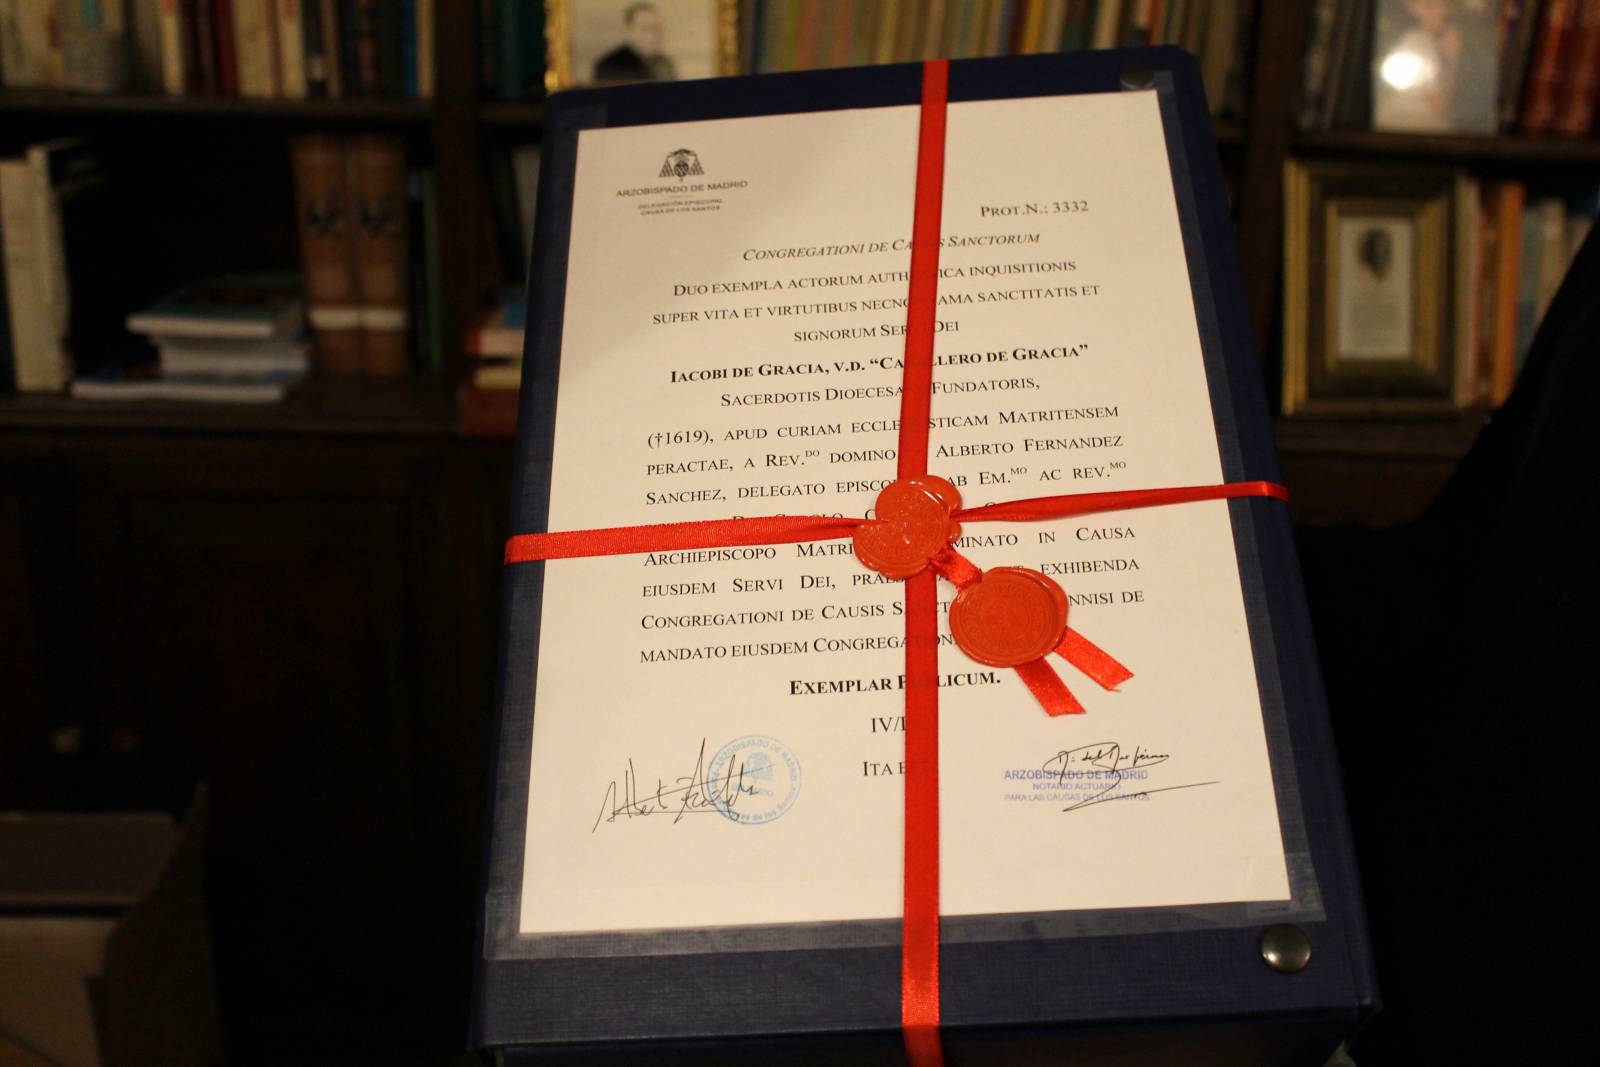 ARZOBISPADO DE MADRID
DELEGACIÓN EPISCOPAL
CAUSA DE LOS SANTOS
PROT.N.: 3332
CONGREGATIONI DE CA S SANCTORUM
DUO EXEMPLA ACTORUM AUTH ICA INQUISITIONIS
SUPER VITA ET VIRTUTIBUS NECNO AMA SANCTITATIS ET
SIGNORUM SER DEI
IACOBI DE GRACIA, V.D. “CA LLERO DE GRACIA”
SACERDOTIS DIOECESA FUNDATORIS,
(†1619), APUD CURIAM ECCLE STICAM MATRITENSEM
PERACTAE, A REV.DO DOMINO ALBERTO FERNANDEZ
SANCHEZ, DELEGATO EPISCO AB EM.MO AC REV.MO
ARCHIEPISCOPO MATRI MINATO IN CAUSA
EIUSDEM SERVI DEI, PRAES EXHIBENDA
CONGREGATIONI DE CAUSIS SANCT NNISI DE
MANDATO EIUSDEM CONGREGATION
EXEMPLAR P LICUM.
IV/
ITA E
ARZOBISPADO DE MADRID
ARZOBISPADO DE MADRID
NOTARIO ACTUARIO
PARA LAS CAUSAS DE LOS SANTOS